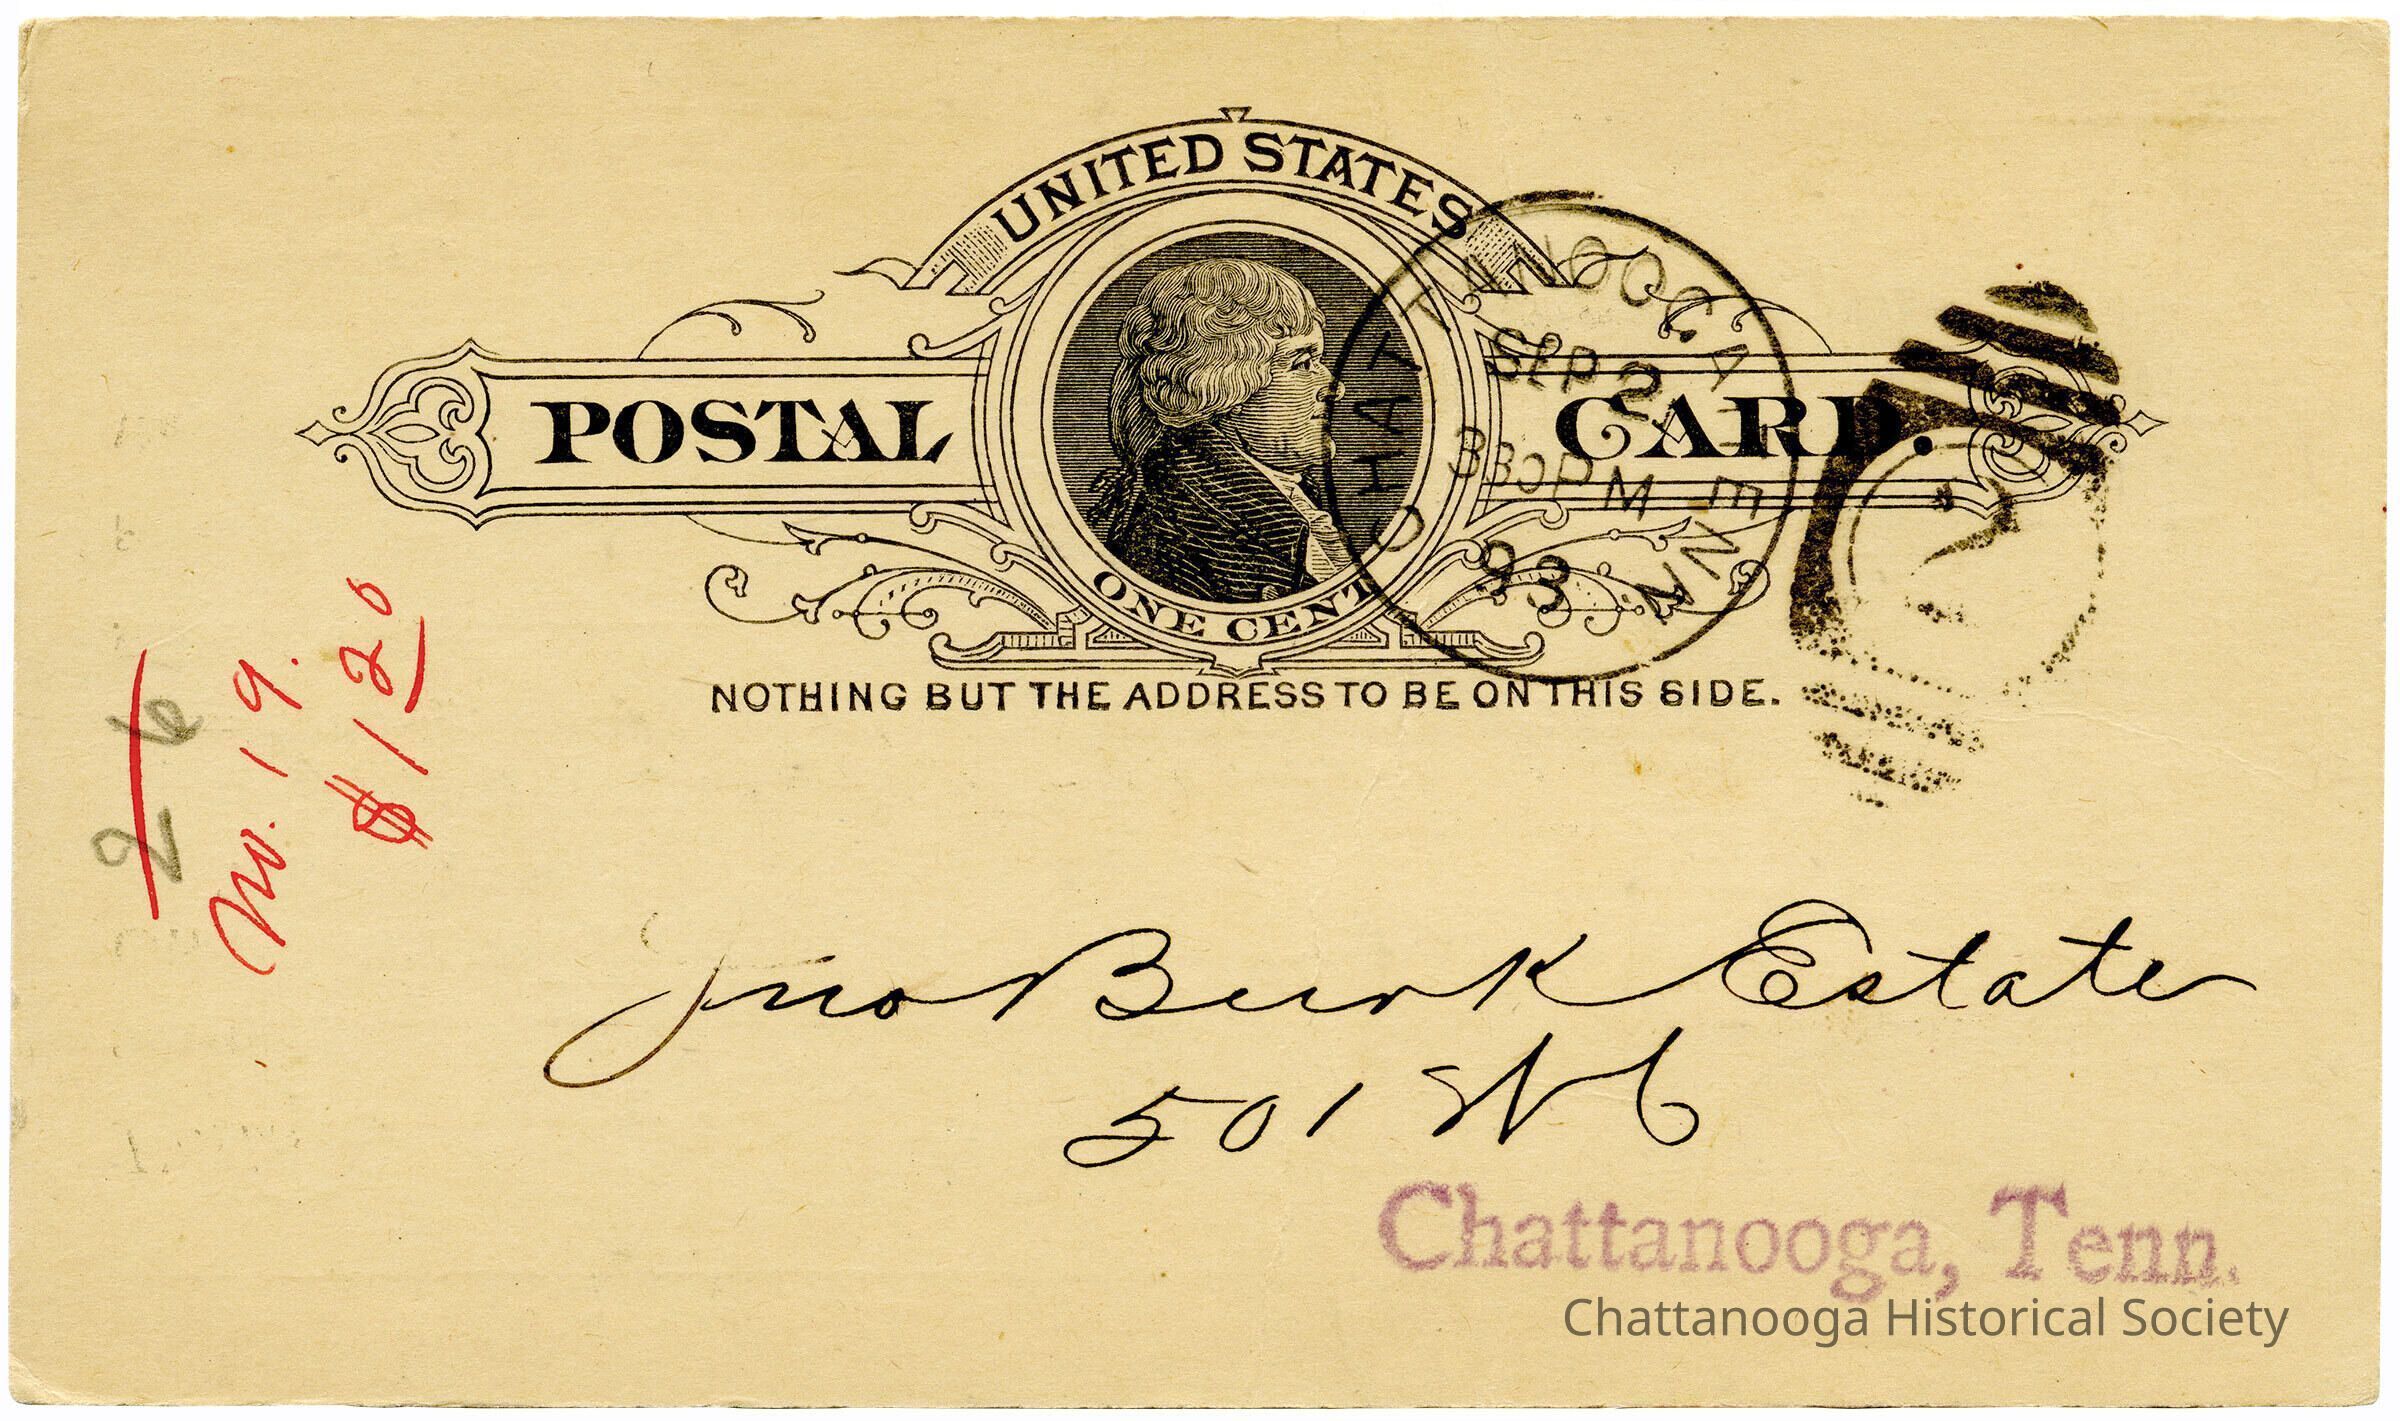 UNITED STATES
POSTAL CARD.
ONE CENT
NOTHING BUT THE ADDRESS TO BE ON THIS SIDE.
CHATTANOOGA TENN.
SEP 2
330PM
93
26
No. 19.
$1 20
Jno Burk Estate
501 W 6
Chattanooga, Tenn.
Chattanooga Historical Society